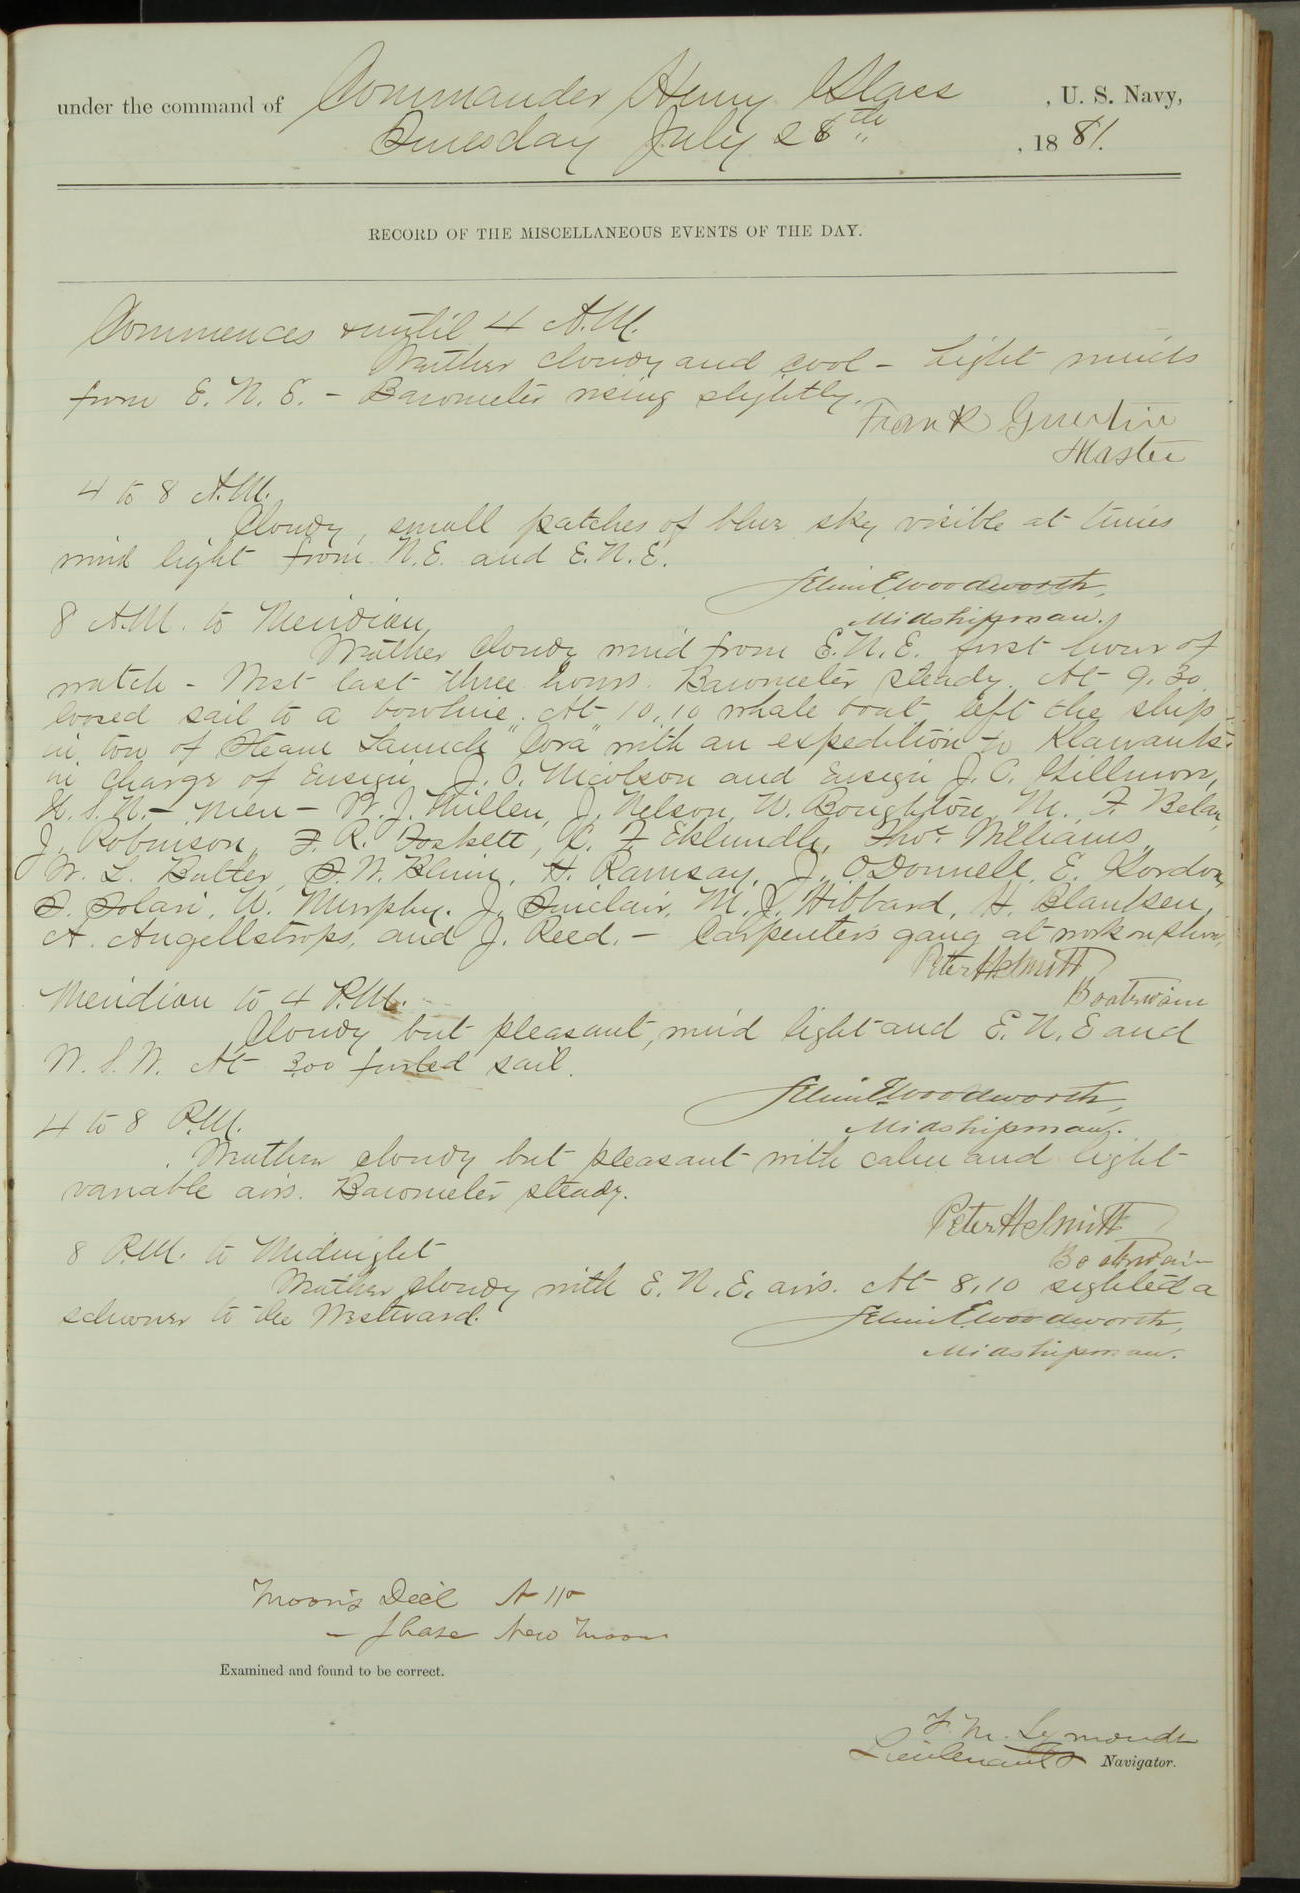 under the command of Commander Henry Glass , U. S. Navy,
Tuesday July 26th , 1881.
RECORD OF THE MISCELLANEOUS EVENTS OF THE DAY.
Commences & until 4 A.M.
Weather cloudy and cool - Light winds
from E. N. E. - Barometer rising slightly.
Frank Guertin
Master
4 to 8 A.M.
Cloudy, small patches of blue sky visible at times
wind light from N.E. and E.N.E.
Selim E Woodworth,
Midshipman.
8 A.M. to Meridian
Weather cloudy wind from E.N.E. first hour of
watch - West last three hours. Barometer steady. At 9.30
loosed sail to a bowline. At 10.10 whale boat left the ship
in tow of Steam Launch "Cora" with an expedition to
in charge of Ensign J. O. Nicolson and Ensign J. C. Gillmore,
U.S.N. - Men - W. J. Millen, J. Nelson, W. Boughton, M. F.
J. Robinson, F. R. Foskett, C. F. Eklundh, Thos. Williams,
W. L. Butter, T. W. Blinn, H. Ramsay, J. O'Donnell, E. Gordon,
T. Tolari, W. Murphy. J. Sinclair, M. J. Hibbard, H. Blanksen,
A. Angellstrops, and J. Reed. - Carpenter's gang at work on
Peter H Smith
Boatswain
Meridian to 4 P.M.
Cloudy but pleasant, wind light and E. N. E and
W. S. W. At 3.00 furled sail.
Selim E Woodworth,
Midshipman.
4 to 8 P.M.
Weather cloudy but pleasant with calm and light
variable airs. Barometer steady.
Peter H Smith
Boatswain
8 P.M. to Midnight
Weather cloudy with E. N. E. airs. At 8.10 sighted a
schooner to the Westward.
Selim E. Woodworth,
Midshipman.
Moon's Decl N 11°
- phase New Moon
Examined and found to be correct.
F. M. Symonds
Lieutenant & Navigator.